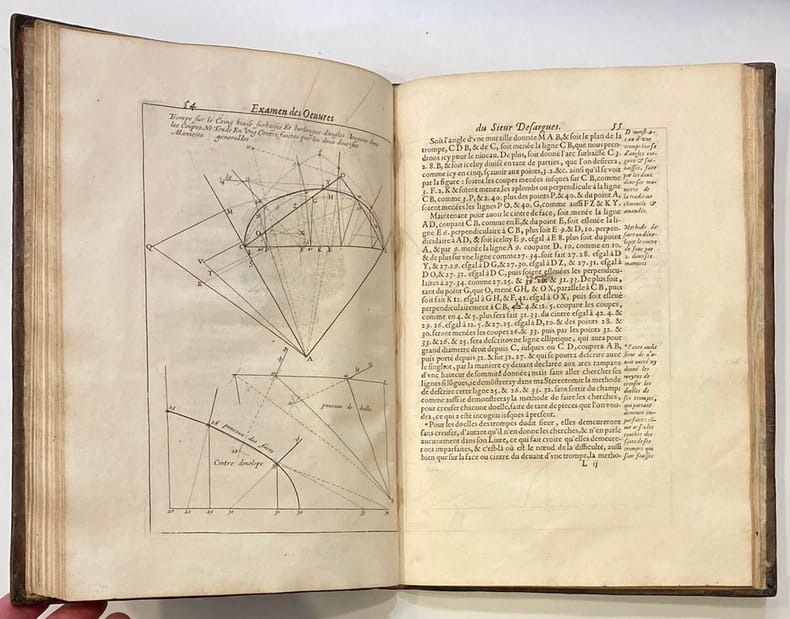 54
Examen des Oeuures
Trompe sur le Coing biaise, surbaissée Et barlongue d'angles
les Coupes, Ne Tende En Ung Centre faictes par les deux diuerses
Manieres generalles
panneau de
panneaux des faces
Cintre deuelopé
du Sieur Desargues. 55
Soit l'angle d'vne muraille donnée M A B, & soit le plan de la
trompe, C D B, & de C, soit menée la ligne C B, que nous pren-
drons icy pour le niueau. De plus, soit donné l'arc surbaissé C 3.
2. 8. B, & soit iceluy diuisé en tant de parties, que l'on desirera,
comme icy en cinq, sçauoir aux points, 3. 2. &c. ainsi qu'il se voit
par la figure: soient les coupes menées iusques sur C B, comme
3. F. 2. K & soient menez les aplombs ou perpendicule à la ligne
C B, comme 3. P, & 2. 40. plus des points P. & 40. & du point A,
soient menées les lignes P O, & 40. G, comme aussi F Z & K Y.
Maintenant pour auoir le cintre de face, soit menée la ligne
A D, coupant C B, comme en E, & du point E, soit esleuée la li-
gne E 6. perpendiculaire à C B, plus soit E 9. & D, 10. perpen-
diculaire à A D, & soit iceluy E 9. esgal à E 8. plus soit du point
A, & par 9. menée la ligne A 9. coupant D. 10, comme en 10,
& de plus sur vne ligne comme 27. 34. soit fait 27. 28. esgal à D
Y, & 27. 29. esgal à D G, & 27. 30. esgal à D Z, & 27. 31. esgal à
D O, & 27. 31. esgal à D C, puis soient esleuées les perpendicu-
laires à 27. 34. comme 27. 25. & & 31. 33. De plus soit,
tant du point G, que O, mené G H, & O X, parallele à C B, puis
soit fait K 12. esgal à G H, & F, 42. esgal à O X, puis soit esleué
perpendiculairement à C B, 42. 4. & 12. 5. coupant les coupes,
comme en 4. & 5. plus sera fait 31. 33. du cintre esgal à 42. 4. &
29. 26. esgal à 12. 5. & 27. 25. esgal à D, 10. & des points 28. &
30. seront menées les coupes 26. & 33. puis par les points 32. &
33. & 26. & 25. sera descrit vne ligne elliptique, qui aura pour
grand diametre droit depuis C, iusques ou C D, coupera A B,
puis porté depuis 32. & sur 32. 27. & qui se pourra descrire auec
le singlot, par la maniere cy deuant declarée aux arcs rampans
d'vne hauteur de sommité donnée; mais sans aller chercher ses
lignes si lógues, ie demõstreray dans ma Stereotomie la methode
de descrire cette ligne 25. & 26. & 33. 32. sans sortir du champ:
comme aussi ie demonstreray la methode de faire les cherches,
pour creuser chacune doelle, faite de tant de pieces que l'on vou-
dra, ce qui a esté incognu iusques à present.
* Pour les doelles des trompes dudit sieur, elles demeureront
sans creuser, d'autant qu'il n'en donne les cherches, & n'en parle
aucunement dans son Liure, ce qui fait croire qu'elles demeure-
ront imparfaites, & c'est là où est le nœud de la difficulté, aussi
bien que sur la face ou cintre du deuant d'vne trompe, la metho-
L ij
tion d'vne
trompe biaise
d'angles
& sur-
baissée, faite
par les deux
diuerses ma-
nieres de
Methode de
faire
le cintre
de face par
2. diuerses
manieres
*
sieur de n'a-
uoir
donné les
moyens de
creuser les
doelles de
ses trompes,
qui partant
demeurent im-
parfaites